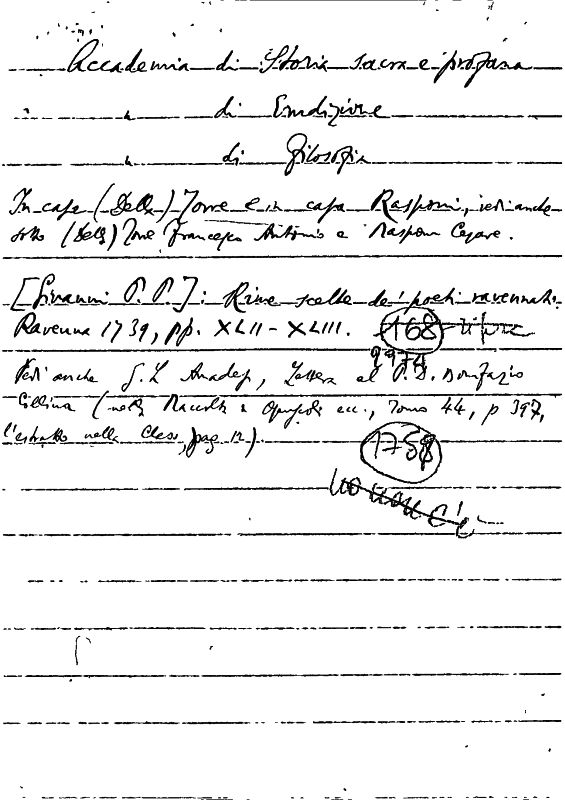 Accademia di Storia sacra e profana
" di Erudizione
" di Filosofia
In casa (Della) Torre e in casa Rasponi, vedi anche
sotto (Della) Torre Francesco Antonio e Rasponi Cesare.
[Ginanni P. P.]: Rime scelte de' poeti ravennati.
Ravenna 1739, pp. XLII - XLIII. 168
Vedi anche G. L. Amadesi, Lettera al P. D. Bonifazio
Collina (nella Raccolta d' Opuscoli ecc., Tomo 44, p 397,
l'estratto nella Class, pag. 12).
1758
no non c'è